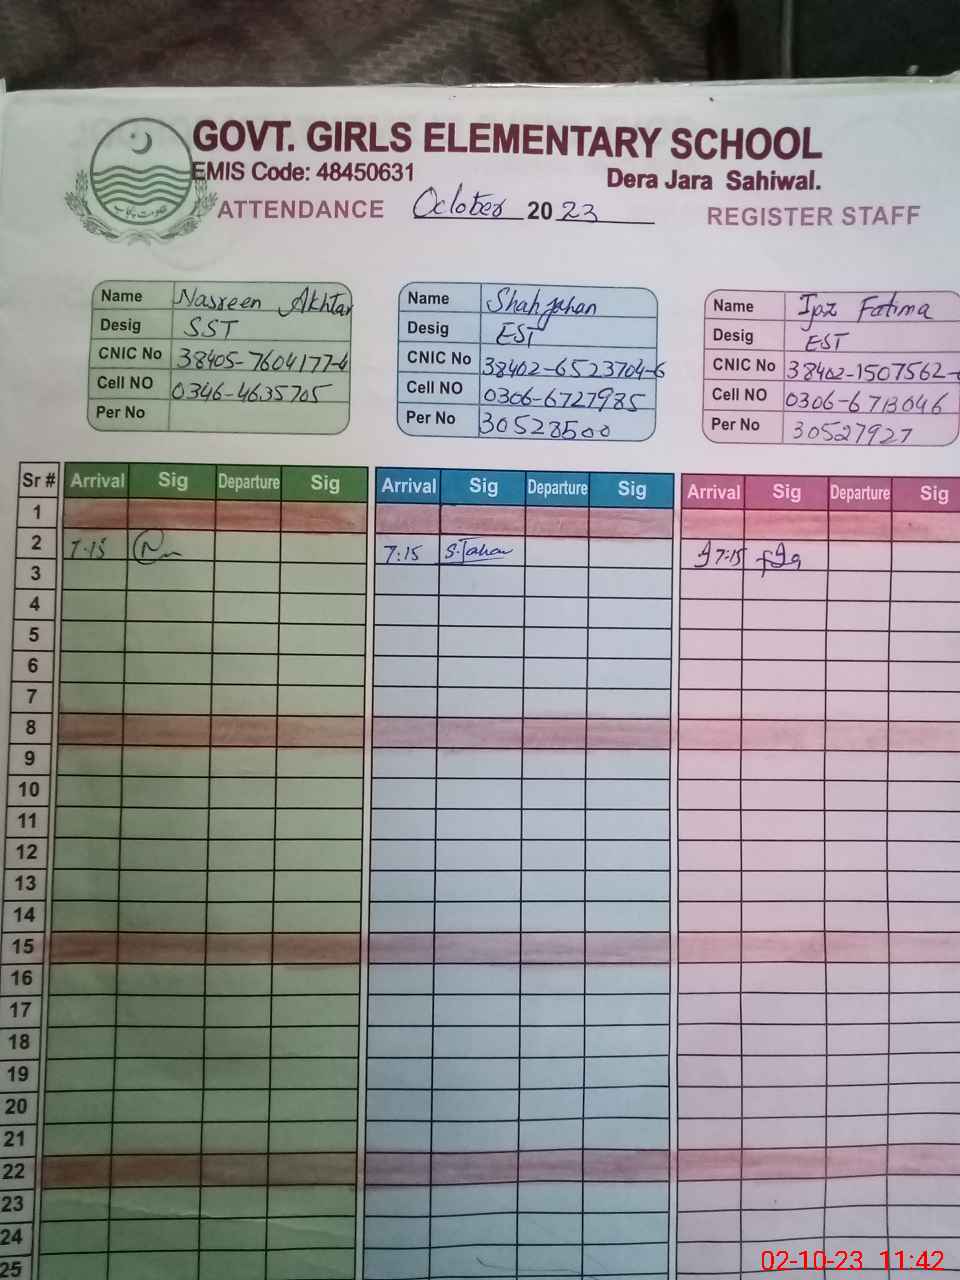 GOVT. GIRLS ELEMENTARY SCHOOL
EMIS Code: 48450631
Dera Jara Sahiwal.
حکومت پنجاب
ATTENDANCE October 2023 REGISTER STAFF
Name Nasreen Akhtar
Desig SST
CNIC No 38405-7604177-4
Cell NO 0346-4635705
Per No
Name Shah Jahan
Desig EST
CNIC No 38402-6523704-6
Cell NO 0306-6727985
Per No 30528500
Name Fatima
Desig EST
CNIC No 38402-1507562-
Cell NO 0306-6713046
Per No 30527927
Sr # Arrival Sig Departure Sig Arrival Sig Departure Sig Arrival Sig Departure Sig
1
2 7:15 7:15 S.Jahan 7:15
3
4
5
6
7
8
9
10
11
12
13
14
15
16
17
18
19
20
21
22
23
24
25
02-10-23 11:42